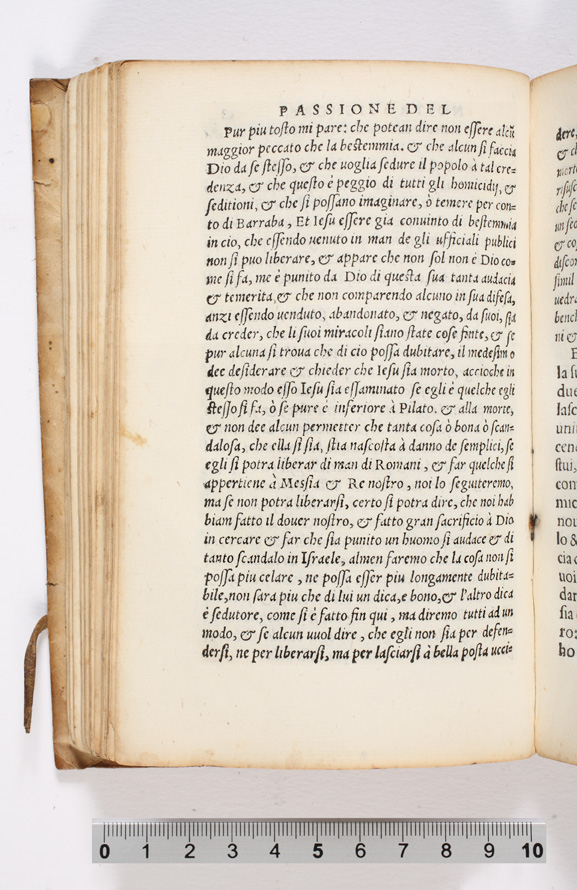 PASSIONE DEL
Pur piu toſto mi pare: che potean dire non eſſere alcũ
maggior peccato che la beſtemmia. & che alcun ſi faccia
Dio da ſe ſteſſo, & che uoglia ſedure il popolo à tal cre=
denza, & che queſto è peggio di tutti gli homicidij, &
ſeditioni, & che ſi poſſano imaginare, ò temere per con=
to di Barraba, Et Ieſu eſſere gia conuinto di beſtemmia
in cio, che eſſendo uenuto in man de gli ufficiali publici
non ſi puo liberare, & appare che non ſol non è Dio co=
me ſi fa, me è punito da Dio di queſta ſua tanta audacia
& temerita, & che non comparendo alcuno in ſua difeſa,
anzi eſſendo uenduto, abandonato, & negato, da ſuoi, ſia
da creder, che li ſuoi miracoli ſiano ſtate coſe finte, & ſe
pur alcuna ſi troua che di cio poſſa dubitare, il medeſimo
dee deſiderare & chieder che Ieſu ſia morto, accioche in
queſto modo eſſo Ieſu ſia eſſaminato ſe egli è quelche egli
ſteſſo ſi fa, ò ſe pure è inferiore à Pilato. & alla morte,
& non dee alcun permetter che tanta coſa ò bona ò ſcan=
daloſa, che ella ſi ſia, ſtia naſcoſta à danno de ſemplici, ſe
egli ſi potra liberar di man di Romani, & far quelche ſi
appertiene à Meſsia & Re noſtro, noi lo ſeguiteremo,
ma ſe non potra liberarſi, certo ſi potra dire, che noi hab
biam fatto il douer noſtro, & fatto gran ſacrificio à Dio
in cercare & far che ſia punito un huomo ſi audace & di
tanto ſcandalo in Iſraele, almen faremo che la coſa non ſi
poſſa piu celare, ne poſſa eſſer piu longamente dubita=
bile, non ſara piu che di lui un dica, e bono, & l'altro dica
è ſedutore, come ſi è fatto fin qui, ma diremo tutti ad un
modo, & ſe alcun uuol dire, che egli non ſia per defen=
derſi, ne per liberarſi, ma per laſciarſi à bella poſta ucci=
dere,
0 1 2 3 4 5 6 7 8 9 10